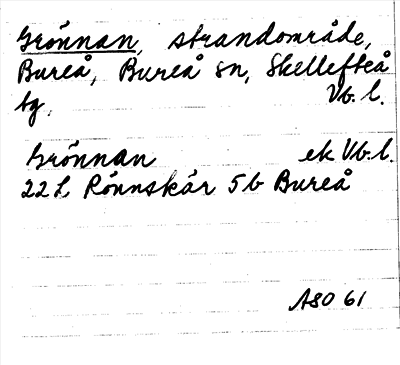 Grönnan, strandområde,
Bureå, Bureå sn, Skellefteå
tg. Vb. l.
Grönnan ek Vb. l.
22 L Rönnskär 5 b Bureå
ASO 61